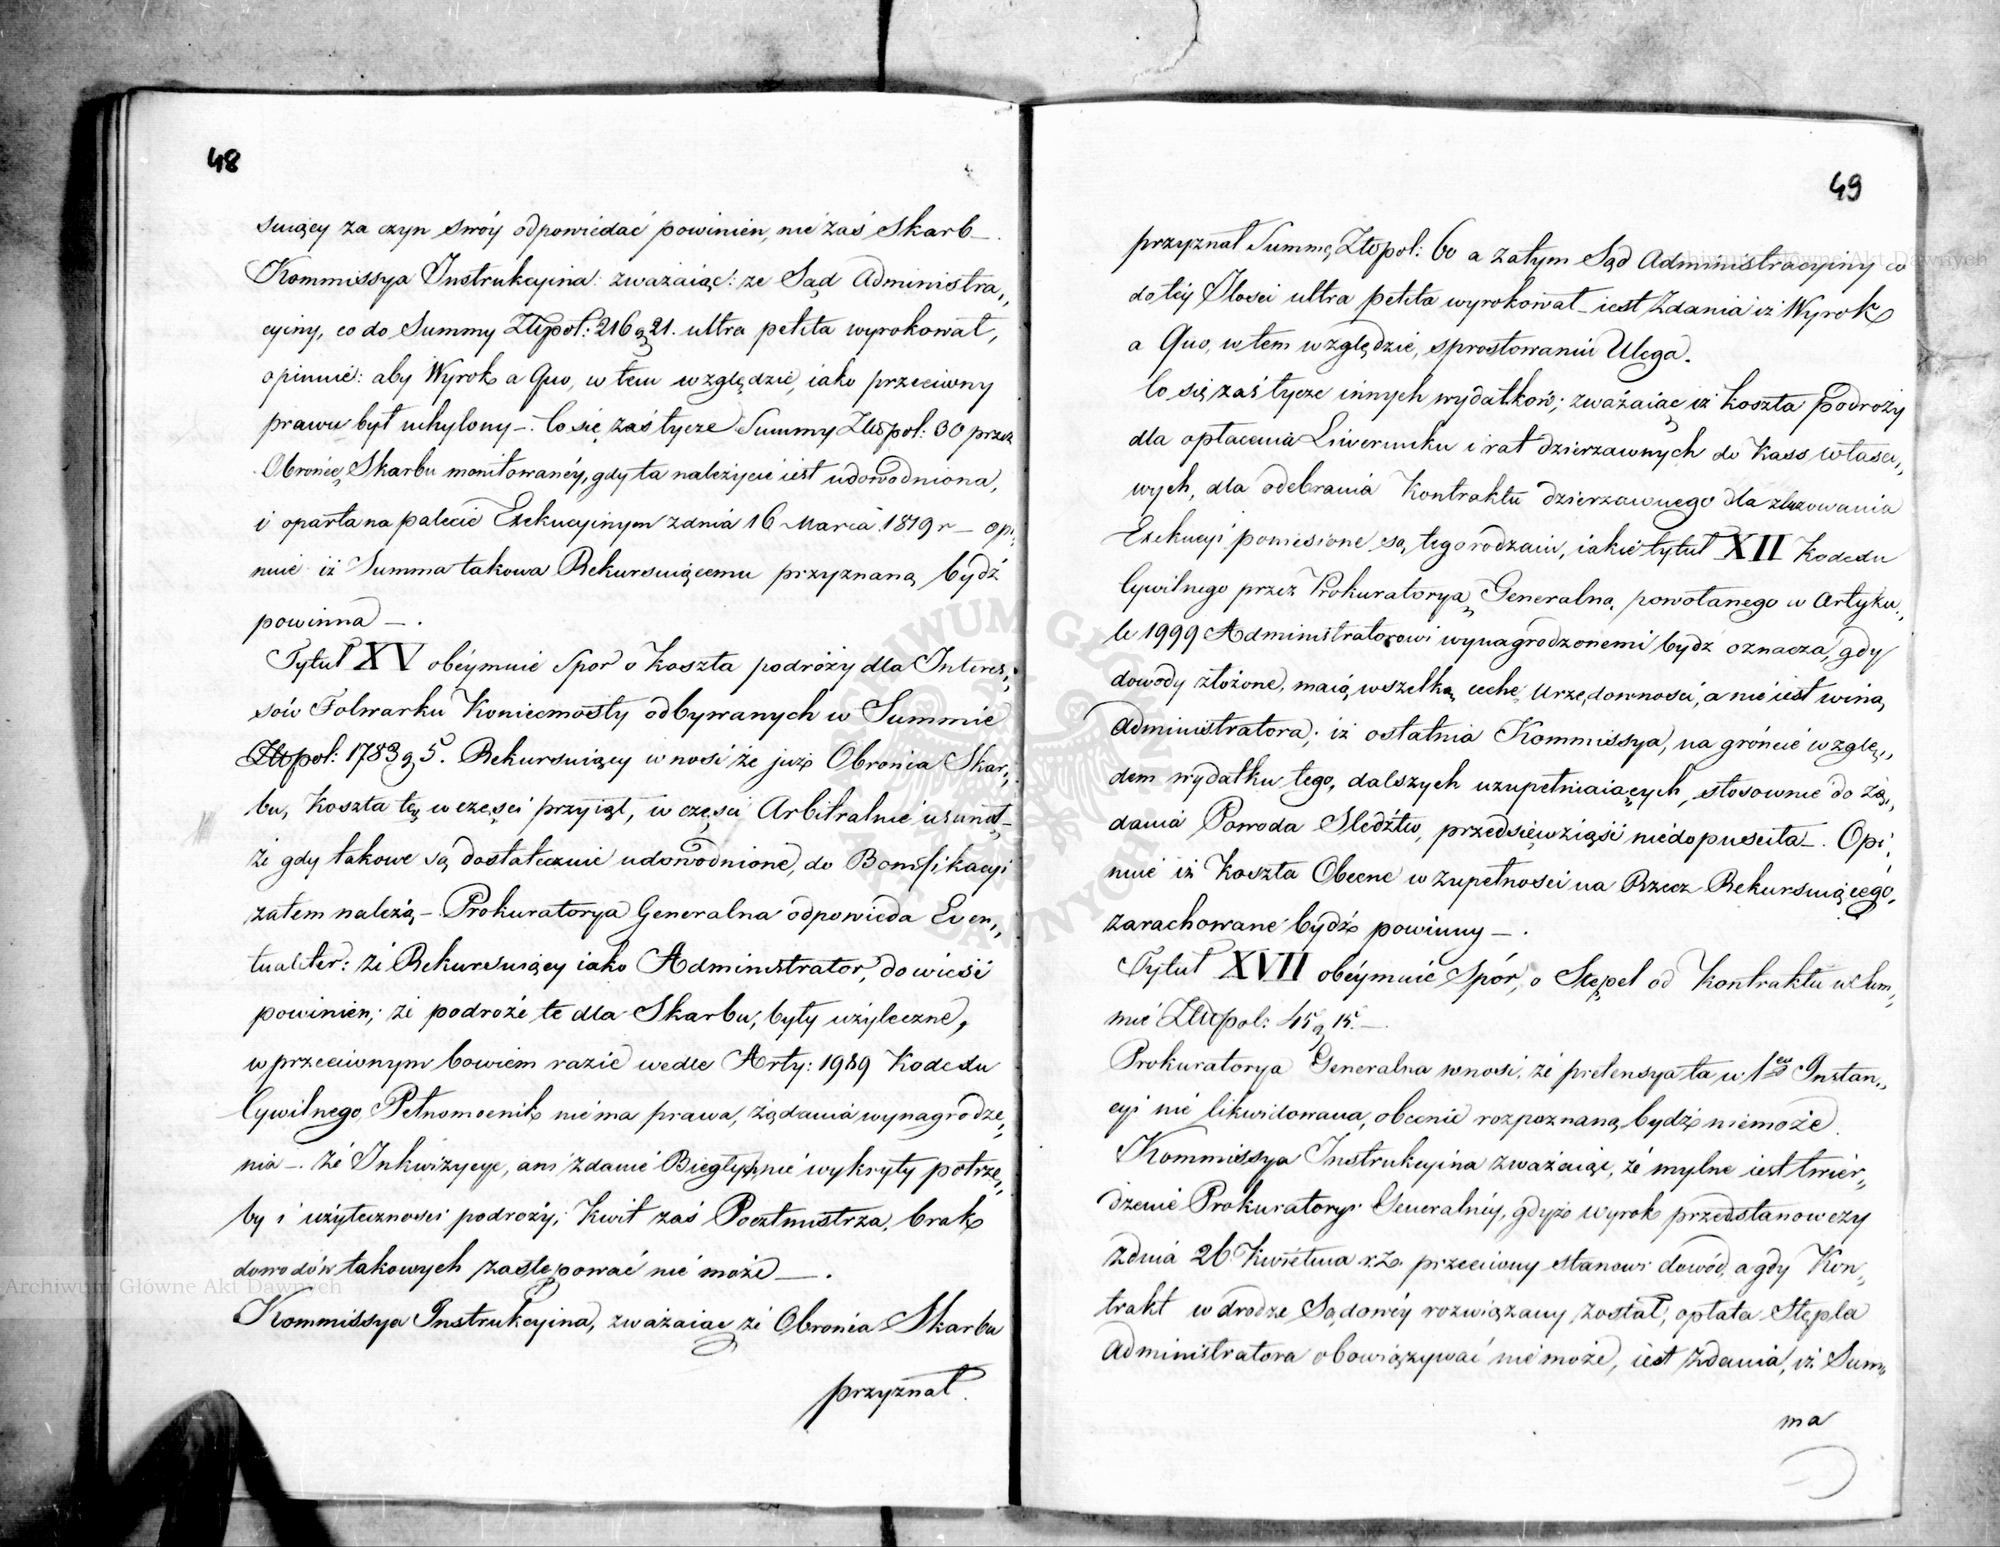 48
suiący za czyn swóy odpowiedać powinien, nie zaś Skarb —.
Kommissya Instrukcyina: zważaiąc: że Sąd Administra„
cyiny, co do Summy Złtpol: 216 g 21. ultra petita wyrokował,
opiniuie: aby Wyrok a Quo, w tem względzie, iako przeciwny
prawu był uchylony —. Co się zaś tycze Summy Złtpol: 30 przez
Obrońcę Skarbu monitowanéy, gdy ta należycie iest udowodniona,
i oparta na palecie Exekucyinym z dnia 16 Marca 1819 r — Opi„
niuie iż Summa takowa Rekursuiącemu przyznaną bydź
powinna —.
Tytuł XV obéymuie Spor o koszta podróży dla Interes„
sów Folwarku Koniecmosty odbywanych w Summie
Złtpol: 1783 g 5. Rekursuiący wnosi że już Obrońca Skar„
bu, koszta tey w części przyiął, w części Arbitralnie usunął —
że gdy takowe są dostatecznie udowodnione, do Bonifikacyi
zatem należą — Prokuratorya Generalna odpowieda Even„
tualiter: że Rekursuiący iako Administrator, dowieść
powinien; że podróże te dla Skarbu, były użyteczne,
w przeciwnym bowiem razie wedle Arty: 1989 Kodexu
Cywilnego, Pełnomocnik nie ma prawa, żądania wynagrodze„
nia —. że Inkwizycye, ani zdanie Biegłych nie wykryły potrze„
by i użyteczności podróży; Kwit zaś Pocztmistrza, brak
dowodów takowych zastępować nie może —.
Kommissya Instrukcyina, zważaiąc że Obrońca Skarbu
przyznał.
49
przyznał Summę Złtpol: 60 a zatym Sąd Administracyiny co
do téy Ilości ultra petita wyrokował — iest zdania iż Wyrok
a Quo, w tem względzie, sprostowaniu Ulega.
Co się zaś tycze innych wydatków; zważaiąc iż koszta podroży
dla opłacenia Liwerunku i rat dzierzawnych do Kass właści„
wych, dla odebrania Kontraktu dzierzawnego dla zluzowania
Exekucyi poniesione są, tego rodzaiu, iakie tytuł XII Kodexu
Cywilnego przez Prokuratoryą Generalną powołanego w Artyku„
le 1999 Administratorowi wynagrodzonemi bydź oznacza, gdy
dowody złożone, maią wszelką cechę Urzędowności, a nie iest winą
Administratora; iż ostatnia Kommissya, na gróncie wzglę„
dem wydatku tego, dalszych uzupełniaiących, stosownie do żą„
dania Powoda Sledźtw, przedsięwziąść niedopuściła —. Opi„
niuie iż Koszta Obecne w zupełności na Rzecz Rekursuiącego,
zarachowane bydź powinny —.
Tytuł XVII obéymuie Spór, o Stępel od Kontraktu w Sum„
mie Złtpol: 45 g 15. —.
Prokuratorya Generalna wnosi, że pretensya ta w 1éy Instan„
cyi nie likwidowana, obecnie rozpoznaną bydź niemoże.
Kommissya Instrukcyina zważaiąc, że mylne iest twier„
dzenie Prokuratoryi Generalnéy, gdyż wyrok przedstanowczy
z dnia 26 Kwietnia r. z. przeciwny stanowi dowód, a gdy Kon„
trakt w drodze Sądowéy rozwiązany został, opłata Stępla
Administratora obowiązywać nie może, iest zdania, iż Sum„
ma
Archiwum Główne Akt Dawnych
Archiwum Główne Akt Dawnych
ARCHIWUM GŁÓWNE AKT DAWNYCH